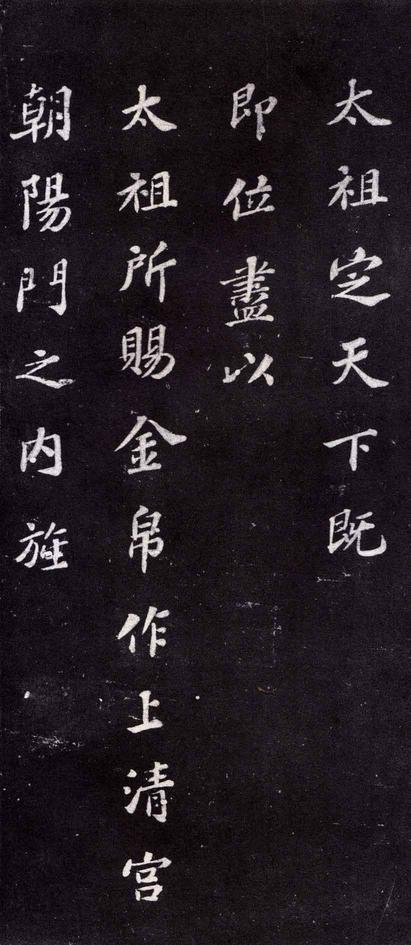 太祖定天下既
即位盡以
太祖所賜金帛作上清宮
朝陽門之内旌